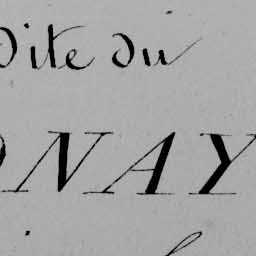 dite du
NAY